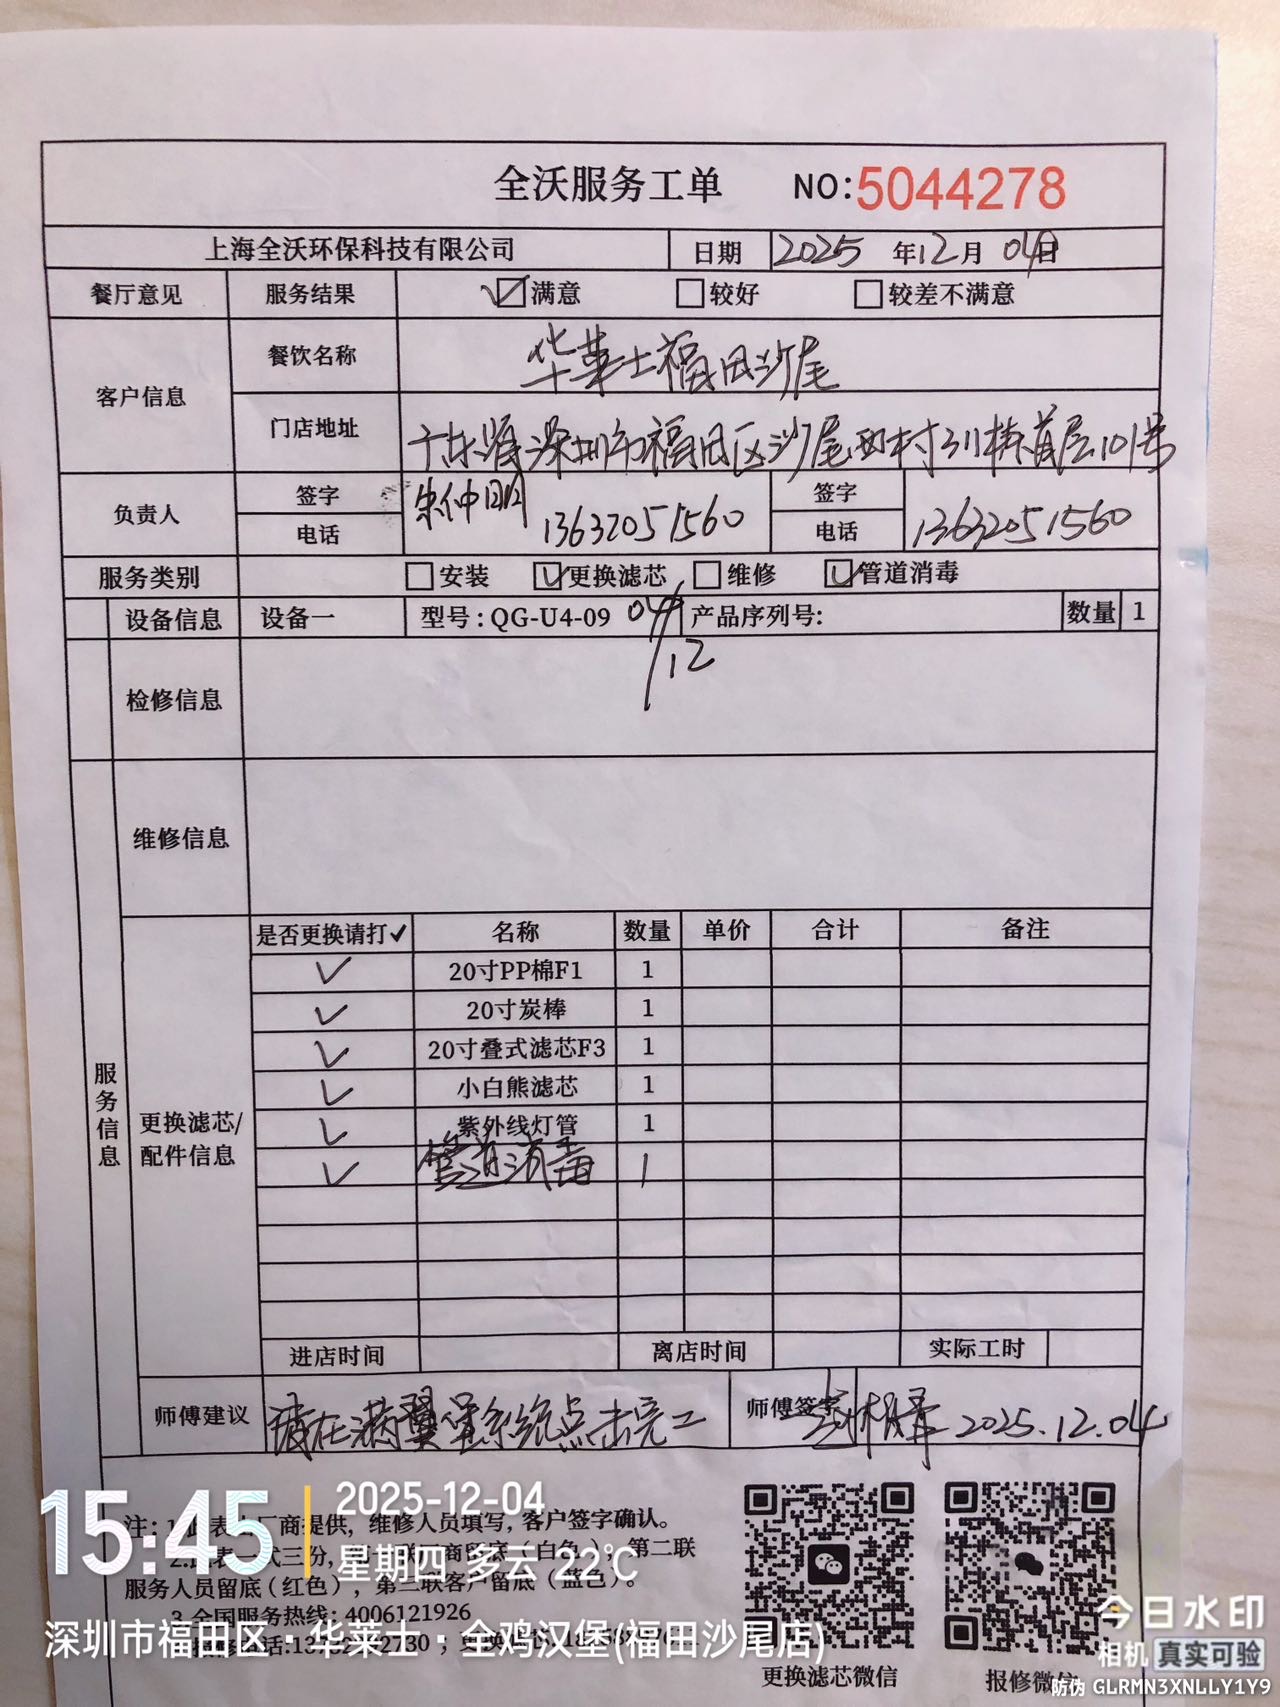 全沃服务工单 NO:5044278
上海全沃环保科技有限公司 日期 2025年12月04日
餐厅意见 服务结果 满意 较好 较差不满意
客户信息 餐饮名称 华莱士福田沙尾
门店地址 广东省深圳市福田区沙尾西村311栋首层101号
负责人 签字 朱仲明 签字
电话 13632051560 电话 13632051560
服务类别 安装 更换滤芯 维修 管道消毒
设备信息 设备一 型号:QG-U4-09 04/12 产品序列号: 数量 1
检修信息
维修信息
服务信息
更换滤芯/配件信息
是否更换请打✓ 名称 数量 单价 合计 备注
✓ 20寸PP棉F1 1
✓ 20寸炭棒 1
✓ 20寸叠式滤芯F3 1
✓ 小白熊滤芯 1
✓ 紫外线灯管 1
✓ 管道消毒 1
进店时间 离店时间 实际工时
师傅建议 请在满翼皇系统点击完工 师傅签字 2025.12.04
注:1.此表由厂商提供,维修人员填写,客户签字确认。
2.此表一式三份, 商留底(白色),第二联
服务人员留底(红色),第三联客户留底(蓝色)。
3.全国服务热线:4006121926
更换滤芯微信 报修微信
15:45 2025-12-04
星期四 多云 22℃
深圳市福田区·华莱士·全鸡汉堡(福田沙尾店)
今日水印
相机 真实可验
防伪 GLRMN3XNLLY1Y9